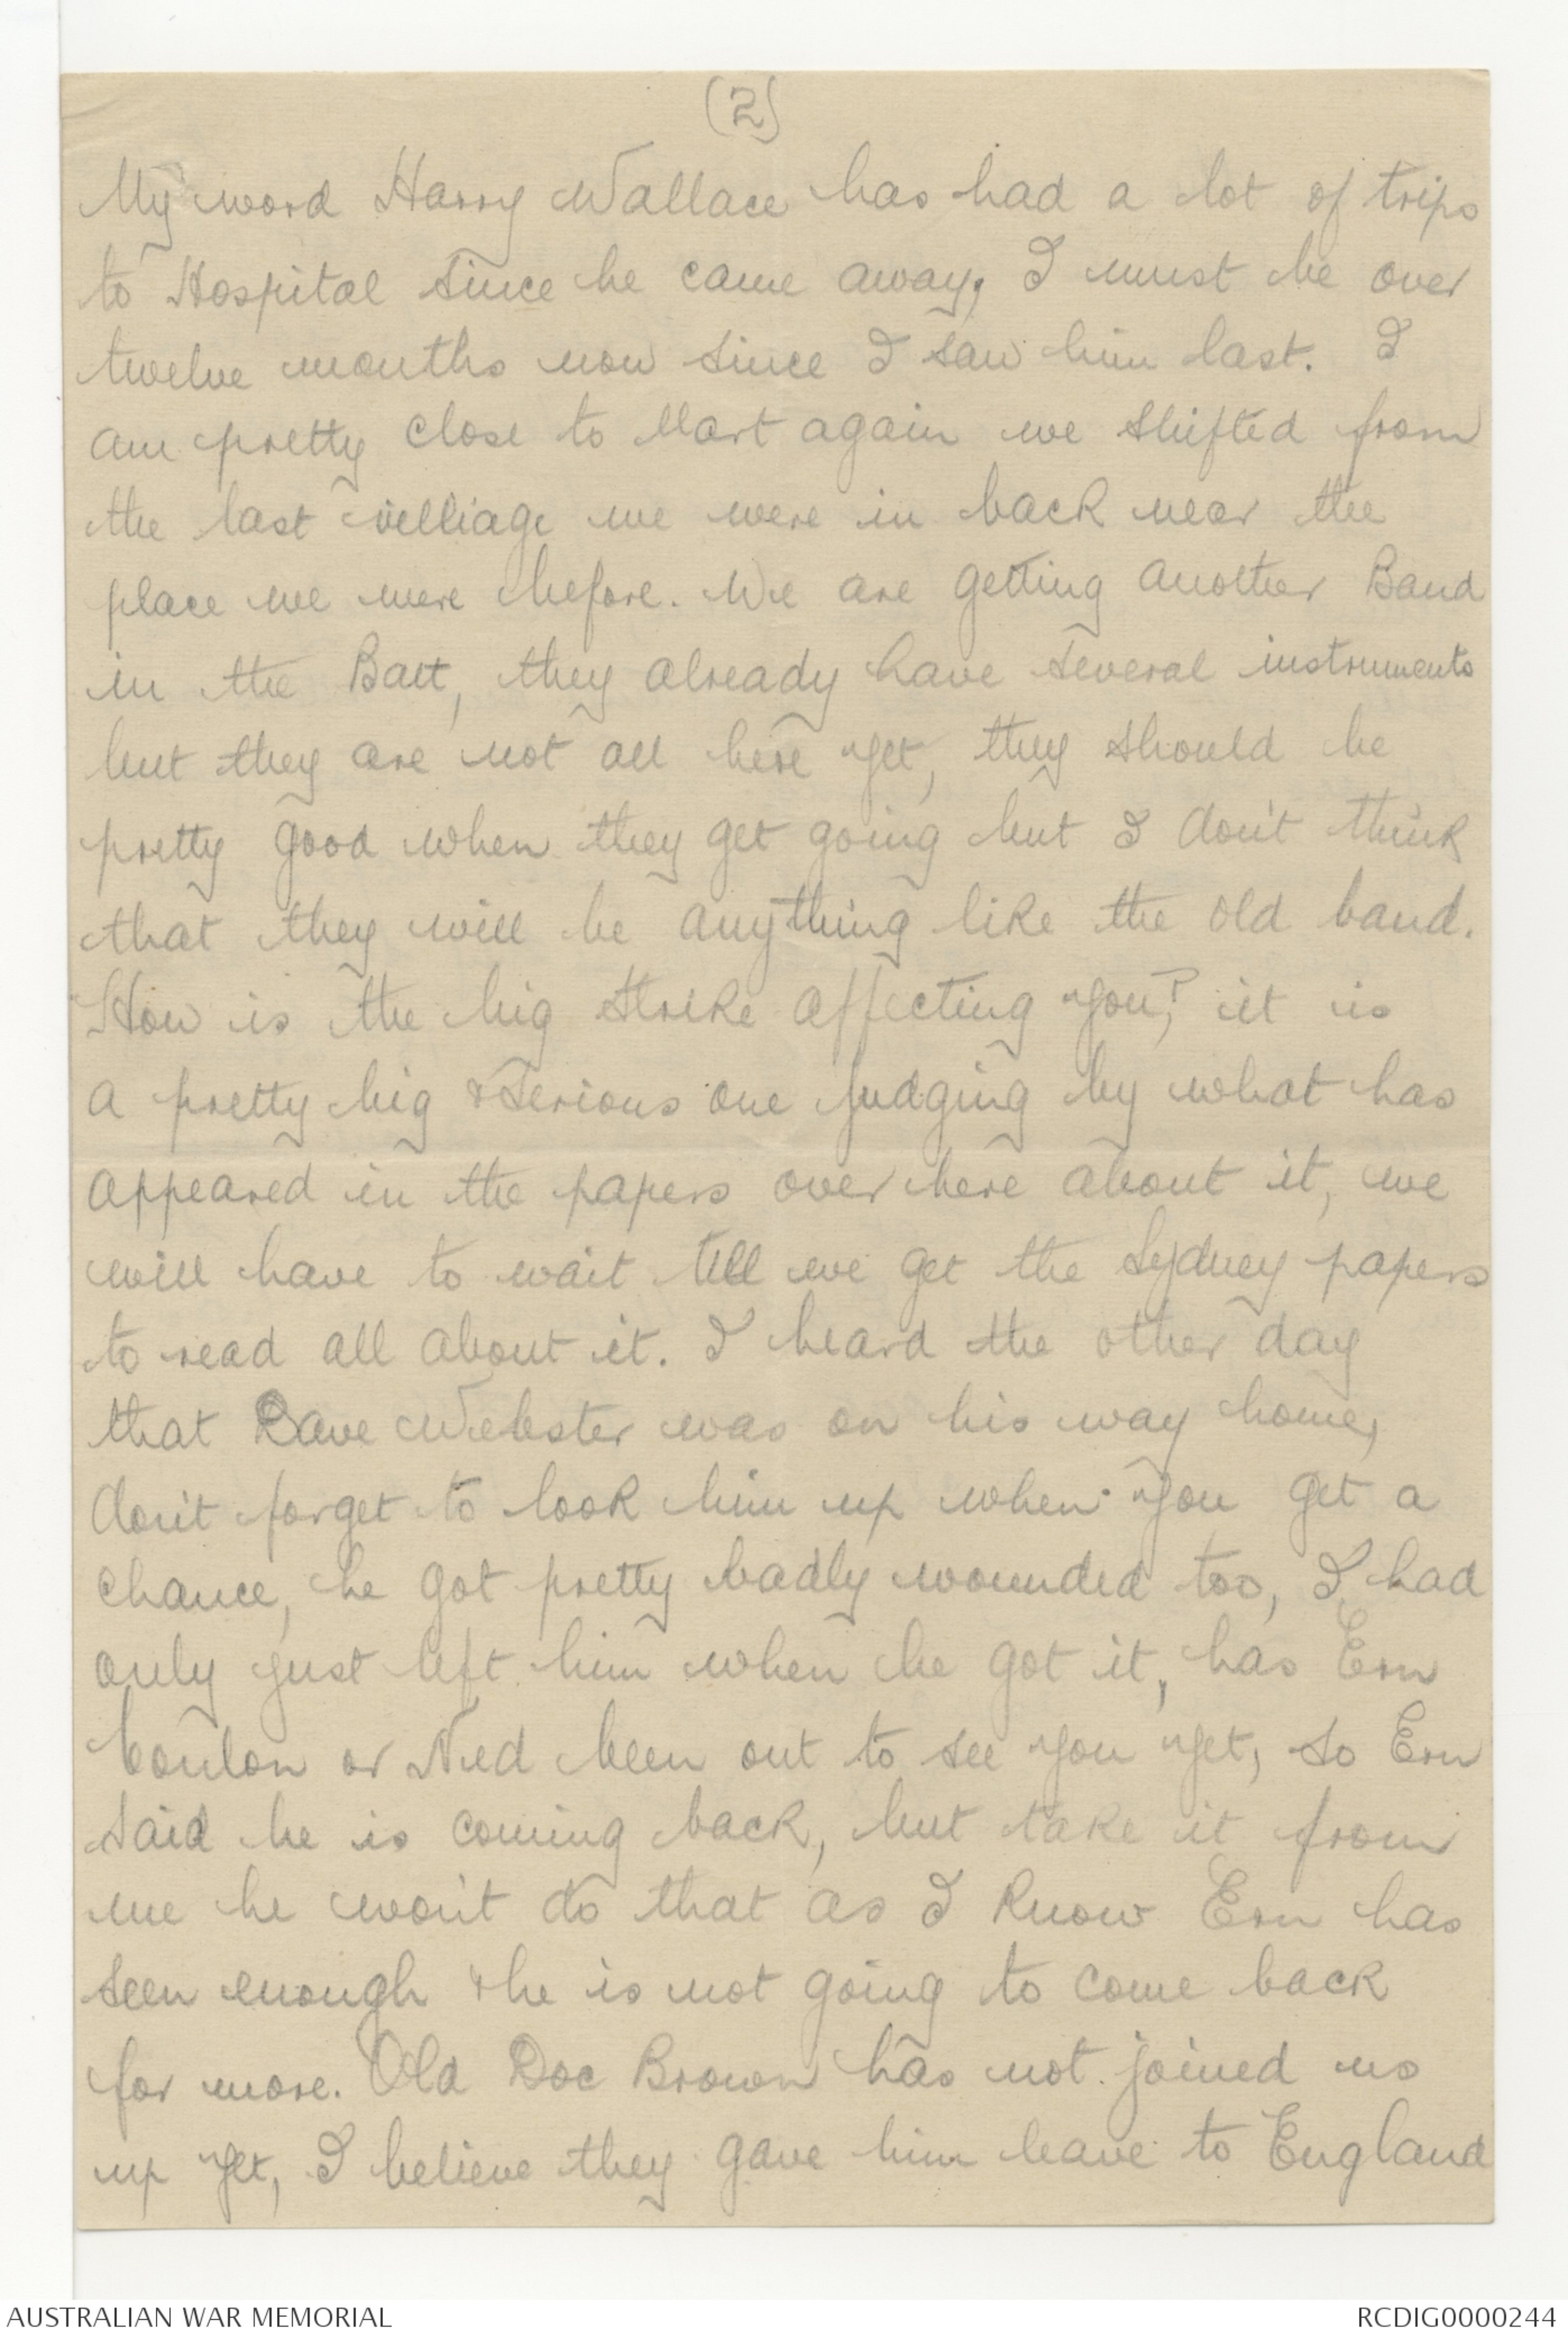 (2)
My word Harry Wallace has had a lot of trips
to Hospital since he came away, I must be over
twelve months now since I saw him last. I
am pretty close to Mart again we shifted from
the last villiage we were in back near the
place we were before. We are getting another Band
in the Batt, they already have several instruments
but they are not all here yet, they should be
pretty good when they get going but I don't think
that they will be anything like the old band.
How is the big strike affecting you?, it is
a pretty big & serious one judging by what has
appeared in the papers over here about it, we
will have to wait till we get the Sydney papers
to read all about it. I heard the other day
that Dave Webster was on his way home,
don't forget to look him up when you get a
chance, he got pretty badly wounded too, I had
only just left him when he got it, has Ern
Conlon or Ned been out to see you yet, so Ern
said he is coming back, but take it from
me he won't do that as I know Ern has
seen enough & he is not going to come back
for more. Old Doc Brown has not joined us
up yet, I believe they gave him leave to England
AUSTRALIAN WAR MEMORIAL
RCDIG0000244